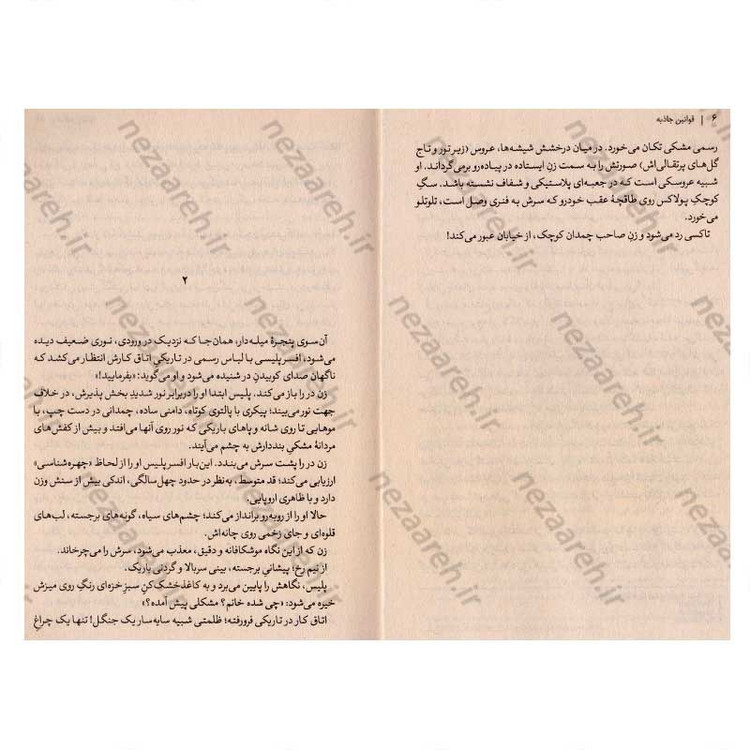 ۶ | قوانین جاذبه
رسمی مشکی تکان می‌خورد. در میان درخشش شیشه‌ها، عروس (زیر تور و تاج
گل‌های پرتقالی‌اش) صورتش را به سمت زنِ ایستاده در پیاده‌رو برمی‌گرداند. او
شبیه عروسکی است که در جعبه‌ای پلاستیکی و شفاف نشسته باشد. سگِ
کوچکِ پولاکس روی طاقچهٔ عقب خودرو که سرش به فنری وصل است، تلوتلو
می‌خورد.
تاکسی رد می‌شود و زنِ صاحب چمدان کوچک، از خیابان عبور می‌کند!
۲
آن سوی پنجرهٔ میله‌دار، همان‌جا که نزدیک در ورودی، نوری ضعیف دیده
می‌شود، افسر پلیسی با لباس رسمی در تاریکیِ اتاق کارش انتظار می‌کشد که
ناگهان صدای کوبیدنِ در شنیده می‌شود و او می‌گوید: «بفرمایید!»
زن در را باز می‌کند. پلیس ابتدا او را دربرابر نور شدیدِ بخش پذیرش، در خلاف
جهت نور می‌بیند؛ پیکری با پالتوی کوتاه، دامنی ساده، چمدانی در دست چپ، با
موهایی تا روی شانه و پاهای باریکی که نور روی آنها می‌افتد و بیش از کفش‌های
مردانهٔ مشکیِ بنددارش به چشم می‌آیند.
زن در را پشت سرش می‌بندد. این‌بار افسر پلیس او را از لحاظ «چهره‌شناسی»
ارزیابی می‌کند؛ قد متوسط، به‌نظر در حدود چهل‌سالگی، اندکی بیش از سنش وزن
دارد و با ظاهری اروپایی.
حالا او را از روبه‌رو برانداز می‌کند؛ چشم‌های سیاه، گونه‌های برجسته، لب‌های
قلوه‌ای و جای زخمی روی چانه‌اش.
زن که از این نگاه موشکافانه و دقیق، معذب می‌شود، سرش را می‌چرخاند.
از نیم رخ؛ پیشانیِ برجسته، بینی سربالا و گردنی باریک.
پلیس، نگاهش را پایین می‌برد و به کاغذخشک‌کنِ سبزِ خزه‌ای رنگِ روی میزش
خیره می‌شود: «چی شده خانم؟ مشکلی پیش آمده؟»
اتاق کار در تاریکی فرورفته؛ ظلمتی شبیه سایه‌سار یک جنگل! تنها یک چراغِ
nezaareh.ir